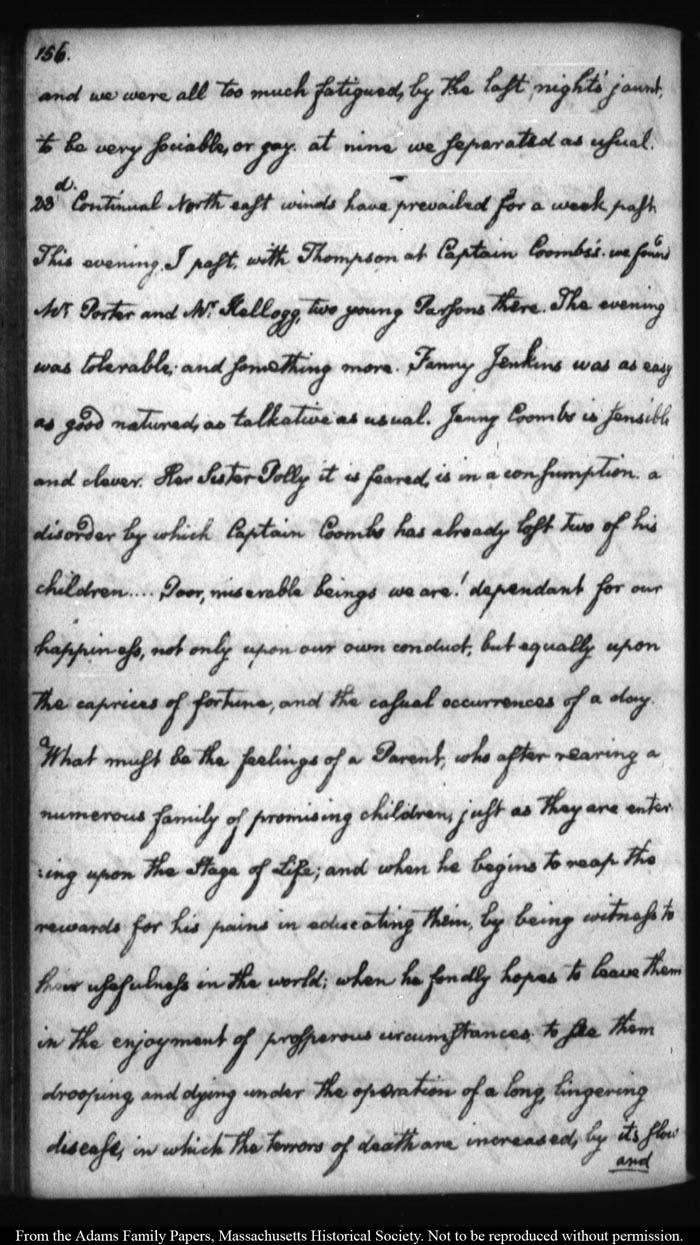 156.
and we were all too much fatigued, by the last night's jaunt,
to be very sociable, or gay. at nine we separated as usual.
23d. Continual North east winds have prevailed for a week past.
This evening, I past, with Thompson at Captain Coombs's. we found
Mr. Porter and Mr. Kellogg, two young Parsons there. The evening
was tolerable; and something more. Fanny Jenkins was as easy
as good natured, as talkative as usual. Jenny Coombs is sensible
and clever. Her Sister Polly it is feared, is in a consumption. a
disorder by which Captain Coombs has already lost two of his
children.... Poor, miserable beings we are! dependant for our
happiness, not only upon our own conduct, but equally upon
the caprices of fortune, and the casual occurrences of a day.
What must be the feelings of a Parent, who after rearing a
numerous family of promising children, just as they are enter
:ing upon the Stage of Life; and when he begins to reap the
rewards for his pains in educating them, by being witness to
their usefulness in the world; when he fondly hopes to leave them
in the enjoyment of prosperous circumstances, to see them
drooping and dying under the operation of a long, lingering
disease, in which the terrors of death are increased, by its slow
and
From the Adams Family Papers, Massachusetts Historical Society. Not to be reproduced without permission.